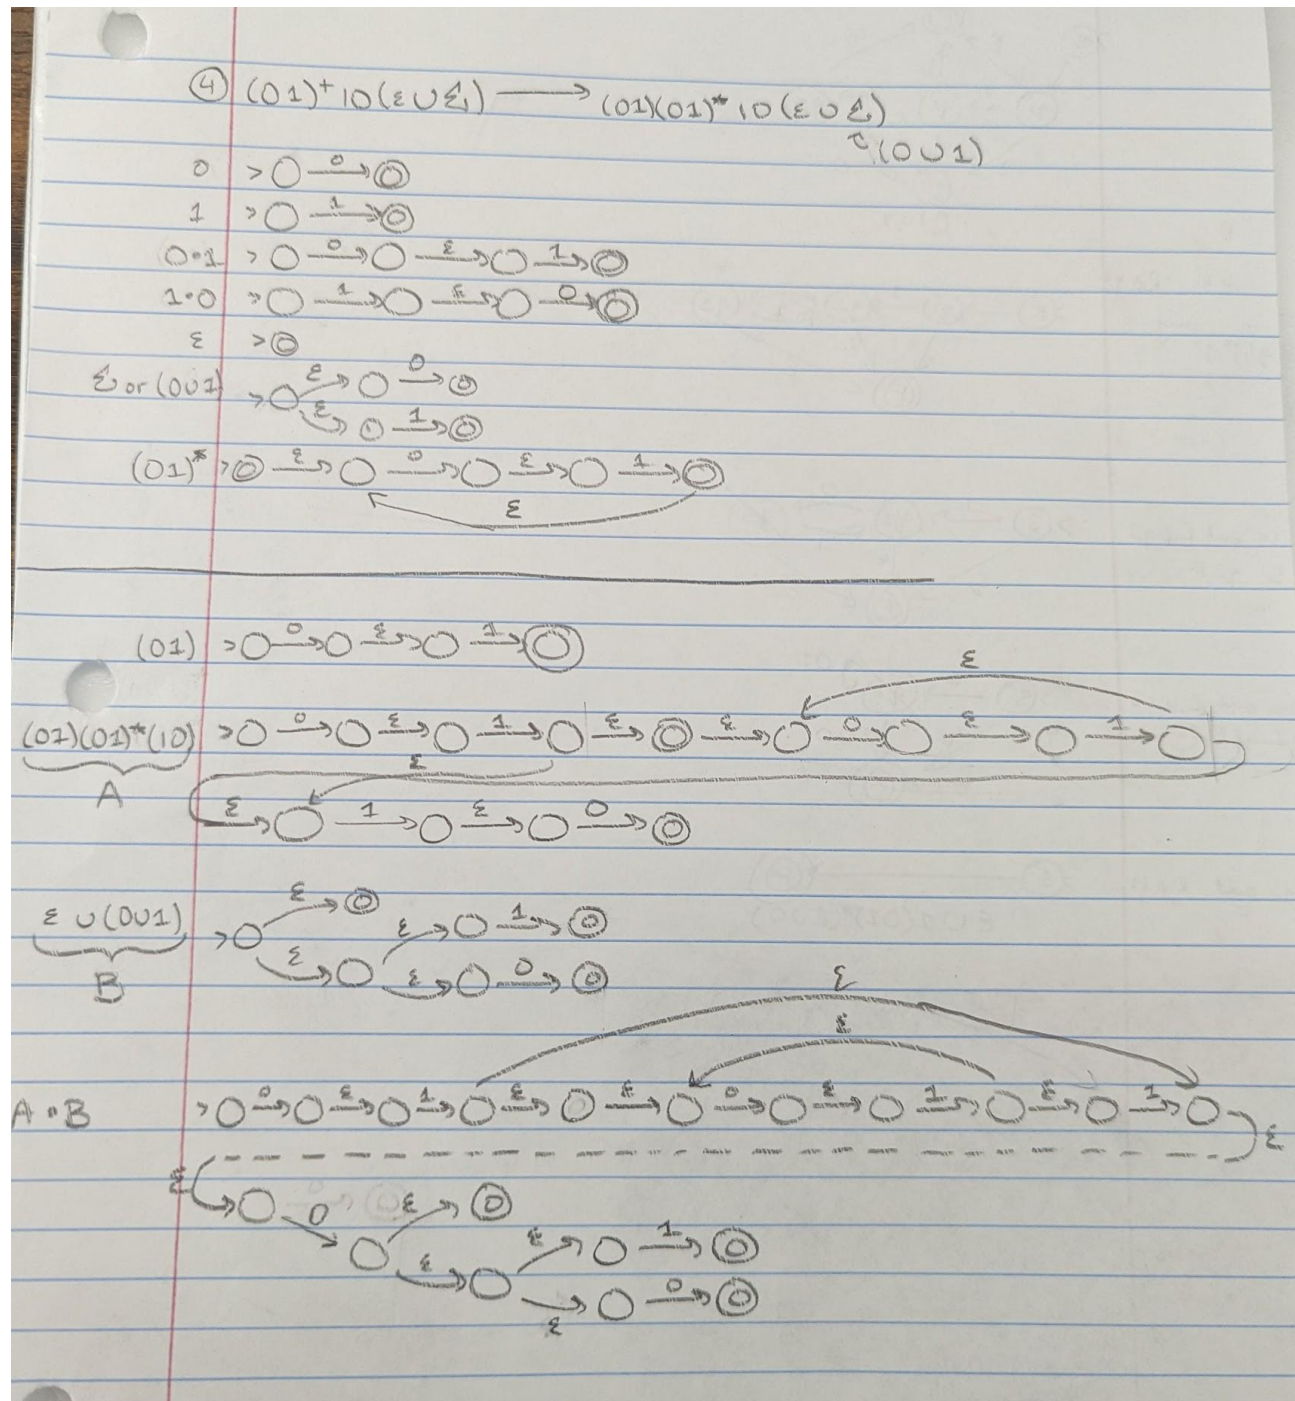 ④ (01)⁺10(ε∪Σ) ⟶ (01)(01)*10(ε∪Σ)
(0∪1)
0 > 0
1 > 1
0•1 > 0 ε 1
1•0 > 1 ε 0
ε >
Σ or (0∪1) > ε 0
ε 1
(01)* > ε 0 ε 1
ε
(01) > 0 ε 1
ε
(01)(01)*(10) > 0 ε 1 ε ε 0 ε 1
A ε
ε 1 ε 0
ε∪(0∪1) > ε ε 1
B ε ε 0
ε
ε
A•B > 0 ε 1 ε ε 0 ε 1 ε 1 ε
ε 0 ε ε 1
ε ε 0